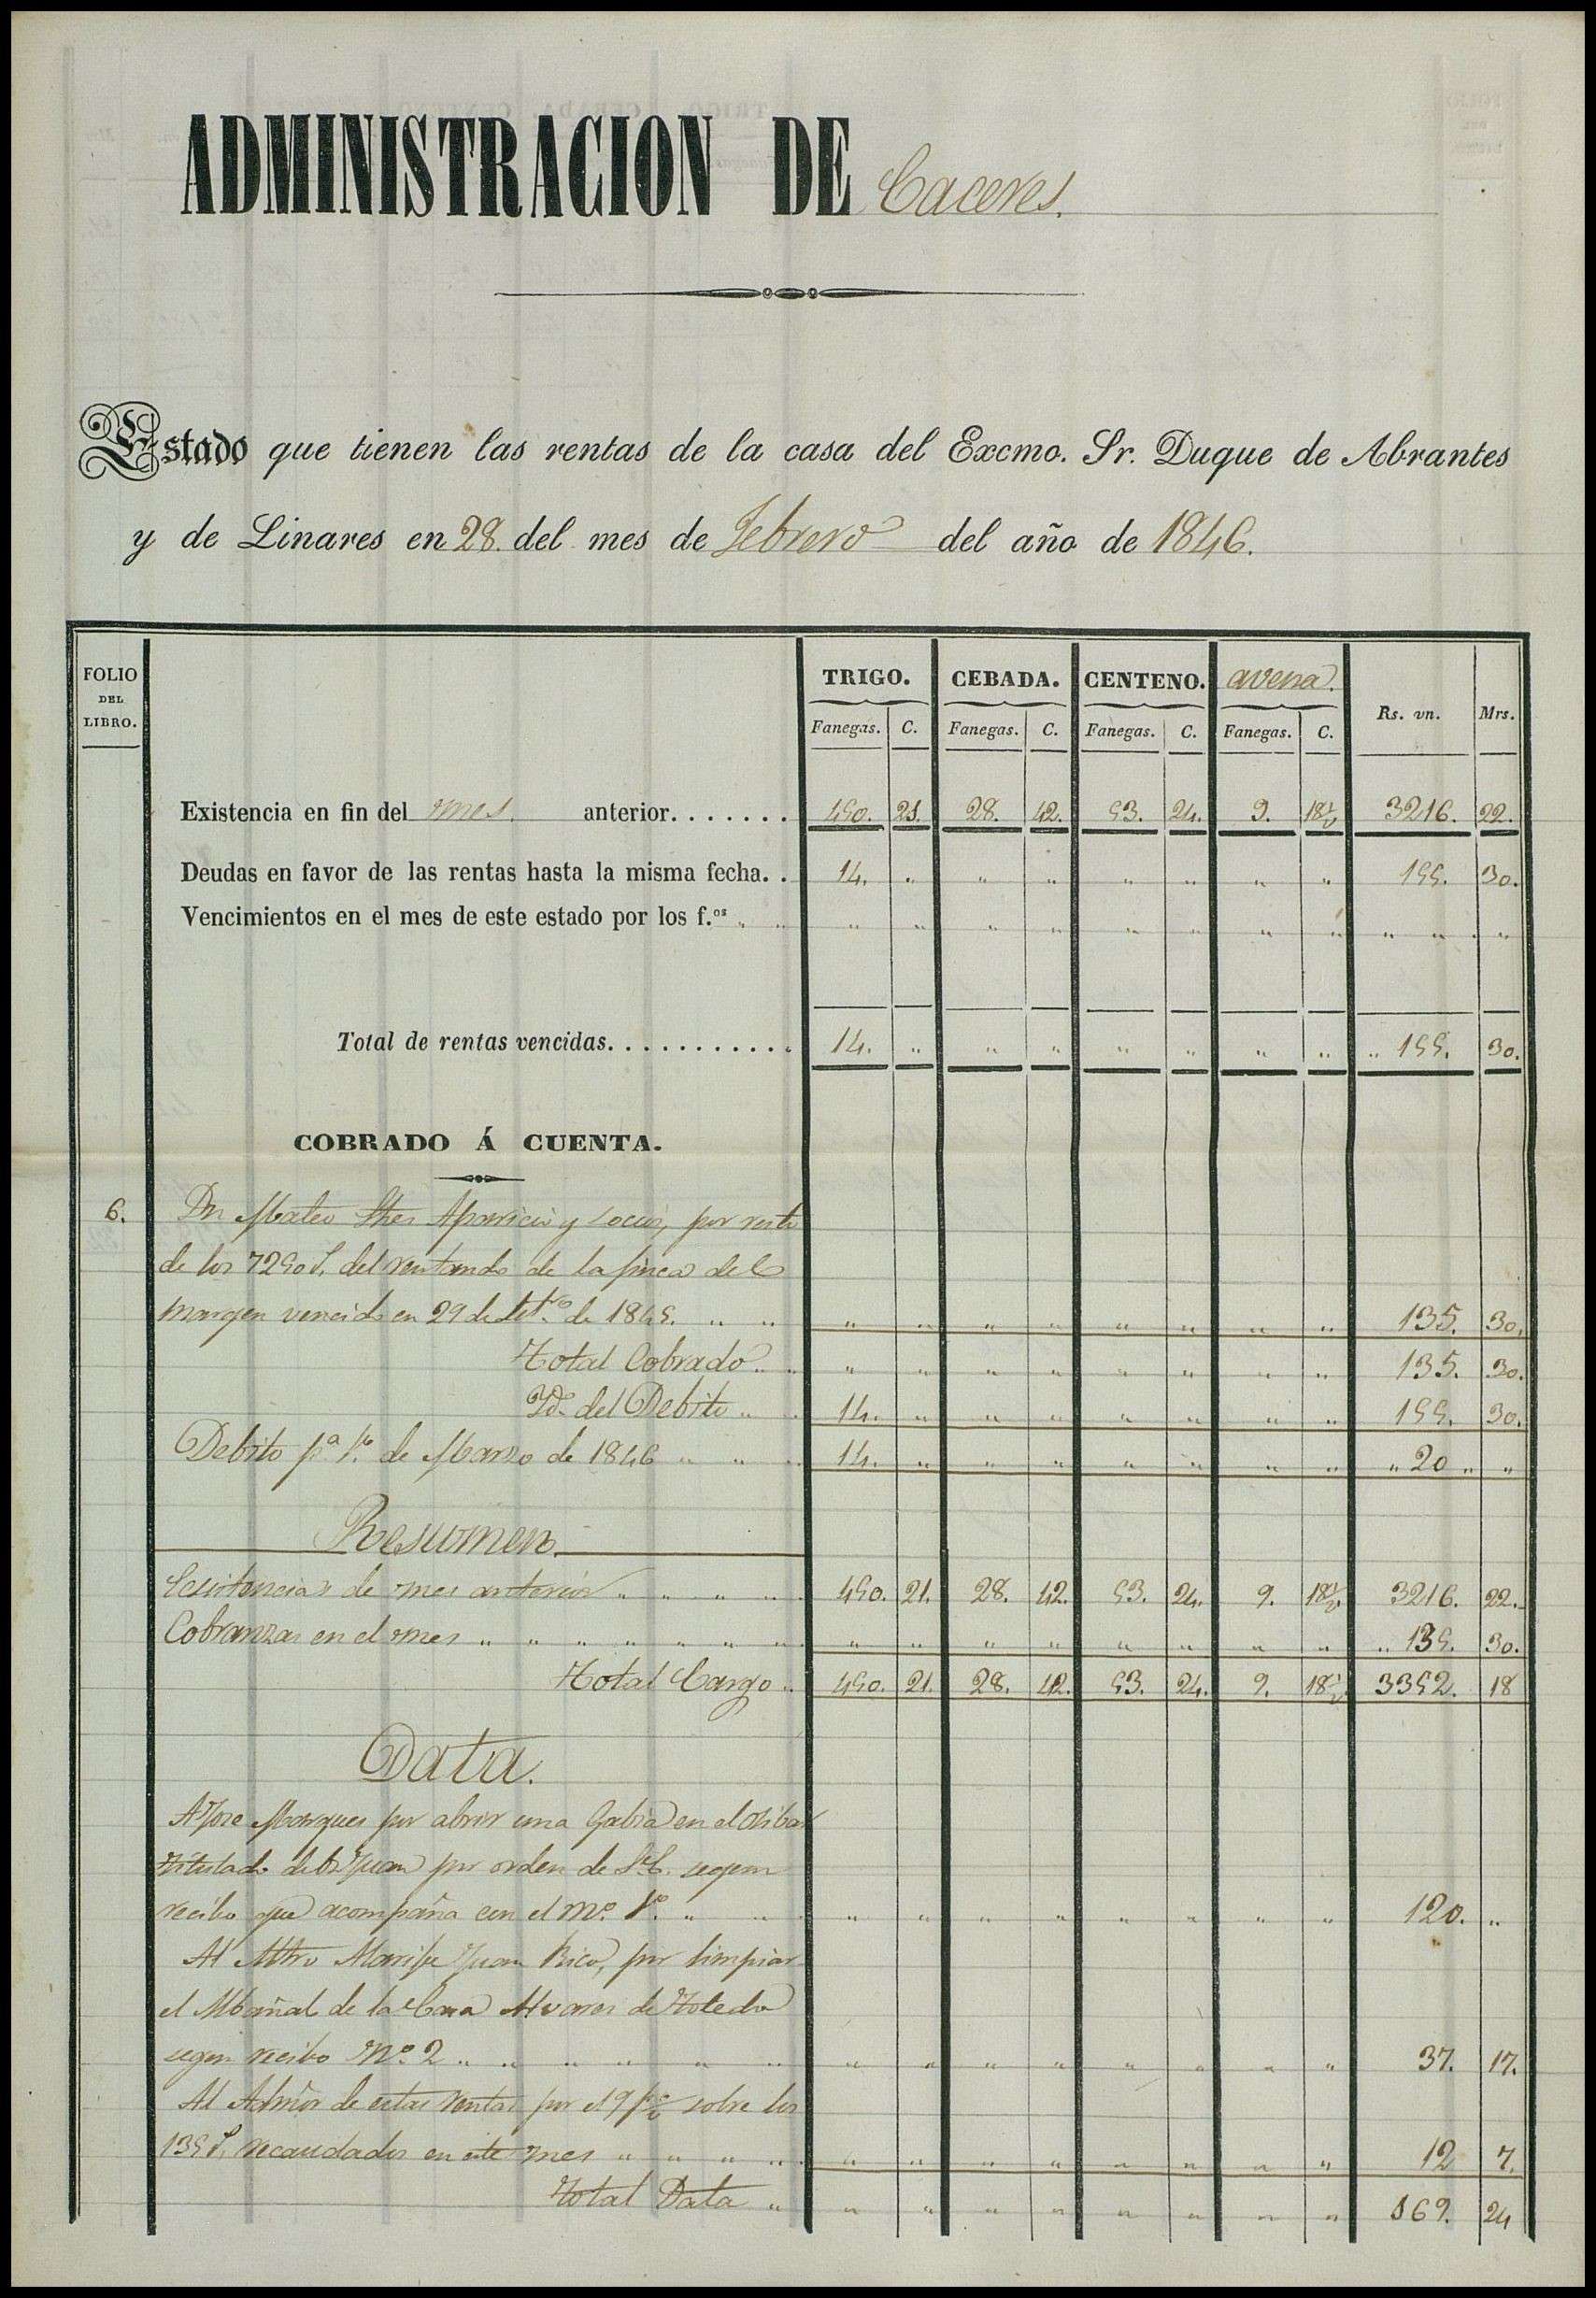 ADMINISTRACION DE Caceres.
Estado que tienen las rentas de la casa del Excmo. Sr. Duque de Abrantes
y de Linares en 28. del mes de Febrero del año de 1846.
FOLIO DEL LIBRO. TRIGO. CEBADA. CENTENO. avena. Rs. vn. Mrs.
Fanegas. C. Fanegas. C. Fanegas. C. Fanegas. C.
Existencia en fin del mes. anterior....... 450. 21. 28. 42. 53. 24. 9. 18½ 3216. 22.
Deudas en favor de las rentas hasta la misma fecha.. 14. " " " " " " " 155. 30.
Vencimientos en el mes de este estado por los f.os " " " " " " " " " " " " "
Total de rentas vencidas............ 14. " " " " " " " " 155. 30.
COBRADO Á CUENTA.
6. Dn Mateo Shes Aparicio y socios, por resto
de los 7250 r. del rentando de la finca del
margen vencido en 29 de Set.e de 1845. " " " " " " " " " " 135. 30.
Total Cobrado " " " " " " " " " 135. 30.
Yd. del Debito " 14. " " " " " " " 155. 30.
Debito p.a 1.o de Marzo de 1846 " " " 14. " " " " " " " " 20 " "
Resumen
Ecsistencias de mes anterior " " " " 450. 21. 28. 42. 53. 24. 9. 18½. 3216. 22.
Cobranzas en el mes " " " " " " " " " " " " " " " " 135. 30.
Total Cargo " 450. 21. 28. 42. 53. 24. 9. 18½ 3352. 18
Data.
A Jose Marques por abrir una Gabia en el Olibar
titulado de Dn Juan por orden de S.E. segun
recibo que acompaña con el No. 1o. " " " " " " " " " " 120. "
Al Mtro Alarife Juan Rico, por limpiar
el Albañal de la Casa Alvares de Toledo
segun recibo No. 2 " " " " " " " " " " " " " " 37. 17.
Al Admor de estas rentas por el 9 p% sobre los
135 r. recaudados en este mes " " " " " " " " " " " " 12 7.
Total Data " " " " " " " " " 169. 24